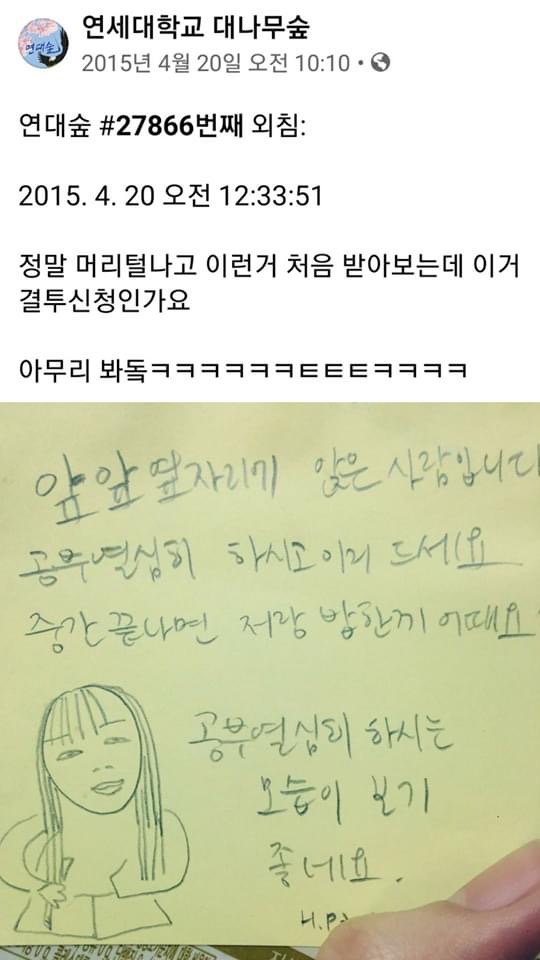 연세대학교 대나무숲
2015년 4월 20일 오전 10:10 •
연대숲 #27866번째 외침:
2015. 4. 20 오전 12:33:51
정말 머리털나고 이런거 처음 받아보는데 이거
결투신청인가요
아무리 봐돜ㅋㅋㅋㅋㅋㅋㅌㅌㅌㅋㅋㅋㅋ
앞앞옆자리에 앉은 사람입니다
공부열심히 하시고 이리 드세요
중간끝나면 저랑 밥한끼 어때요
공부열심히 하시는
모습이 보기
좋네요.
H.P